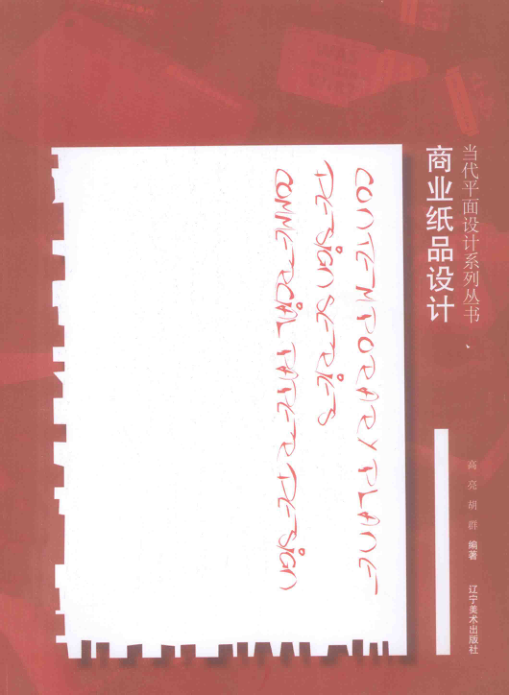 当代平面设计系列丛书
商业纸品设计
CONTEMPORARY PLANE
DESIGN SERIES
COMMERCIAL PAPER DESIGN
高亮 胡群 编著
辽宁美术出版社